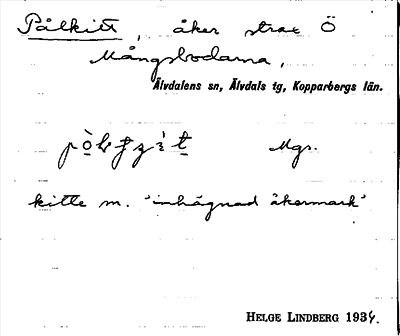 Pålkitt, åker strax Ö
Mångsbodarna,
Älvdalens sn, Älvdals tg, Kopparbergs län.
Mgs.
kitte m. 'inhägnad åkermark'
HELGE LINDBERG 1934.